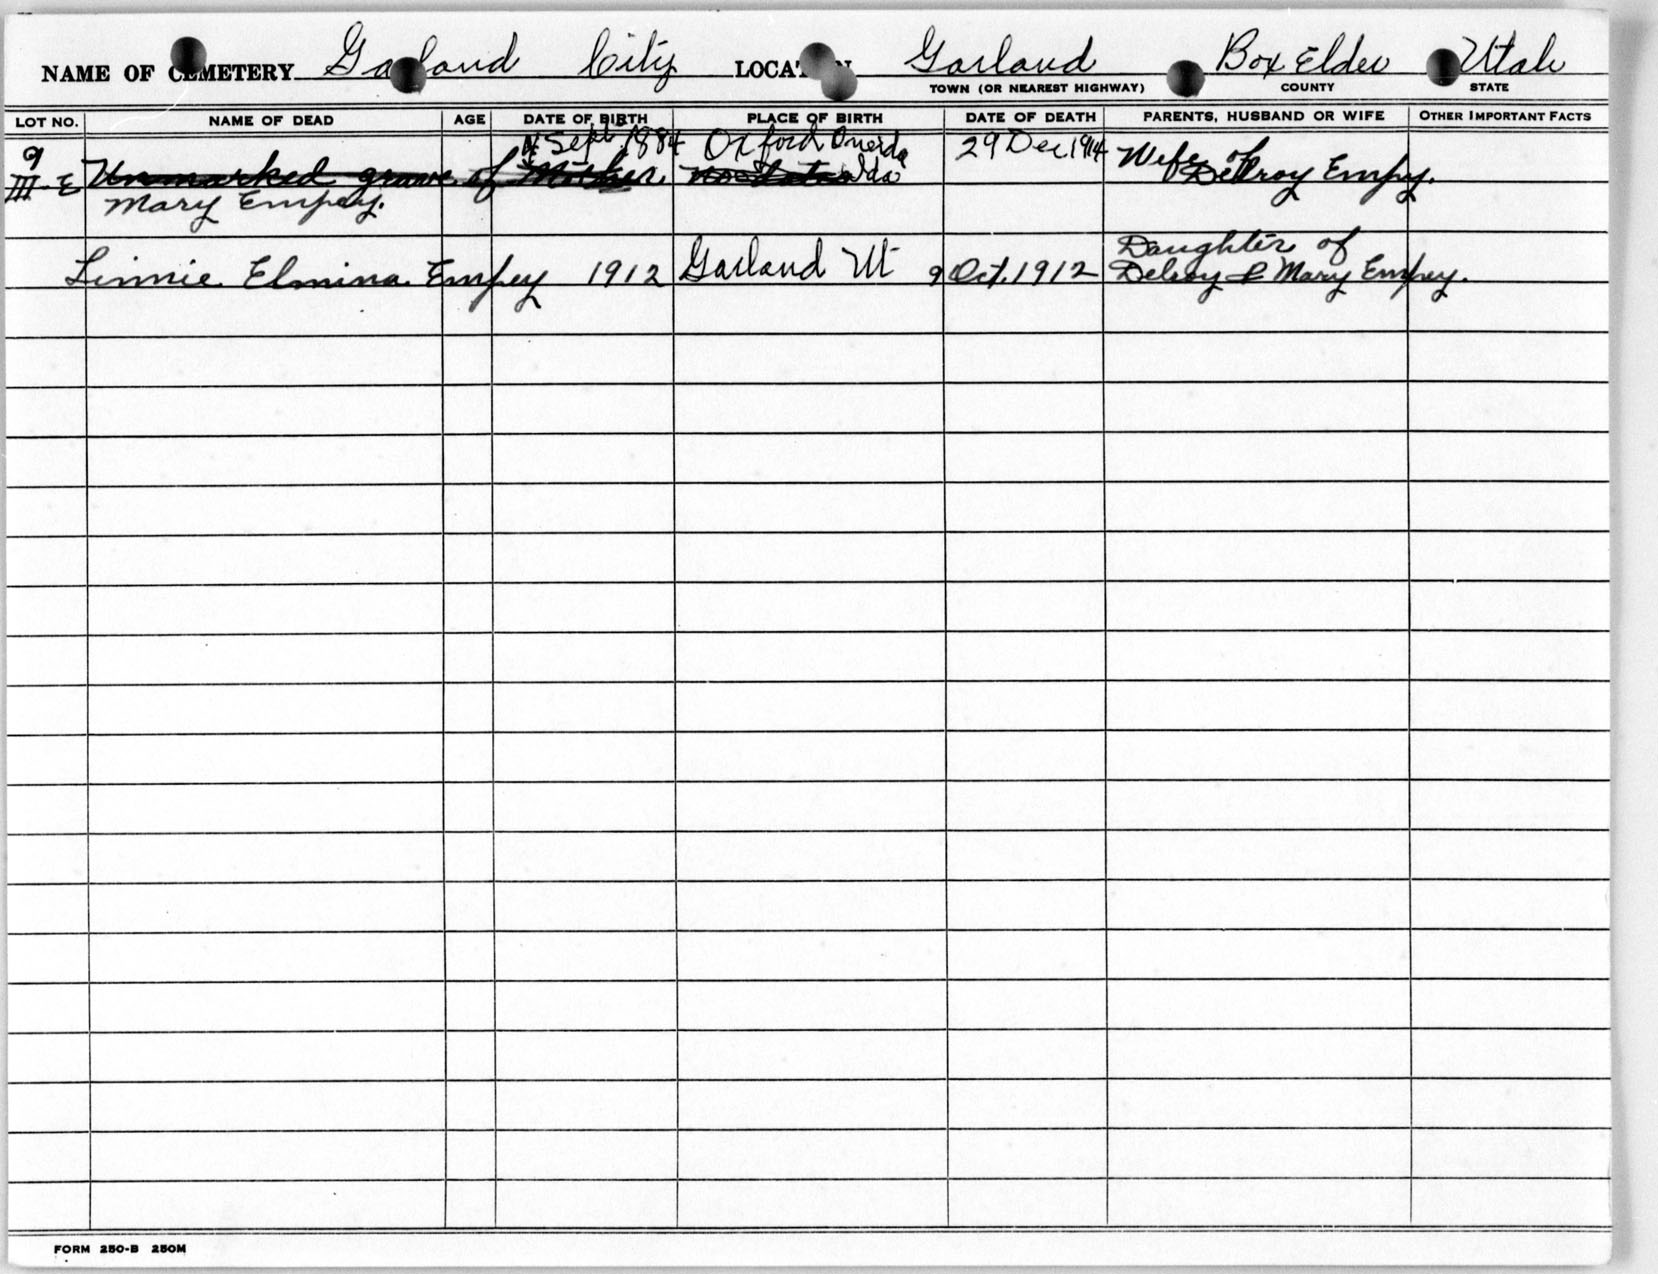 NAME OF CEMETERY Garland City LOCATION Garland Box Elder Utah
TOWN (OR NEAREST HIGHWAY) COUNTY STATE
LOT NO. NAME OF DEAD AGE DATE OF BIRTH PLACE OF BIRTH DATE OF DEATH PARENTS, HUSBAND OR WIFE OTHER IMPORTANT FACTS
9 Sept 1884 Oxford Oneida 29 Dec 1914 Wife of
III-E Unmarked grave of Mother. No dates Ida Delroy Empey.
Mary Empey.
Daughter of
Linnie Elmina Empey 1912 Garland Ut 9 Oct. 1912 Delroy & Mary Empey.
FORM 250-B 250M